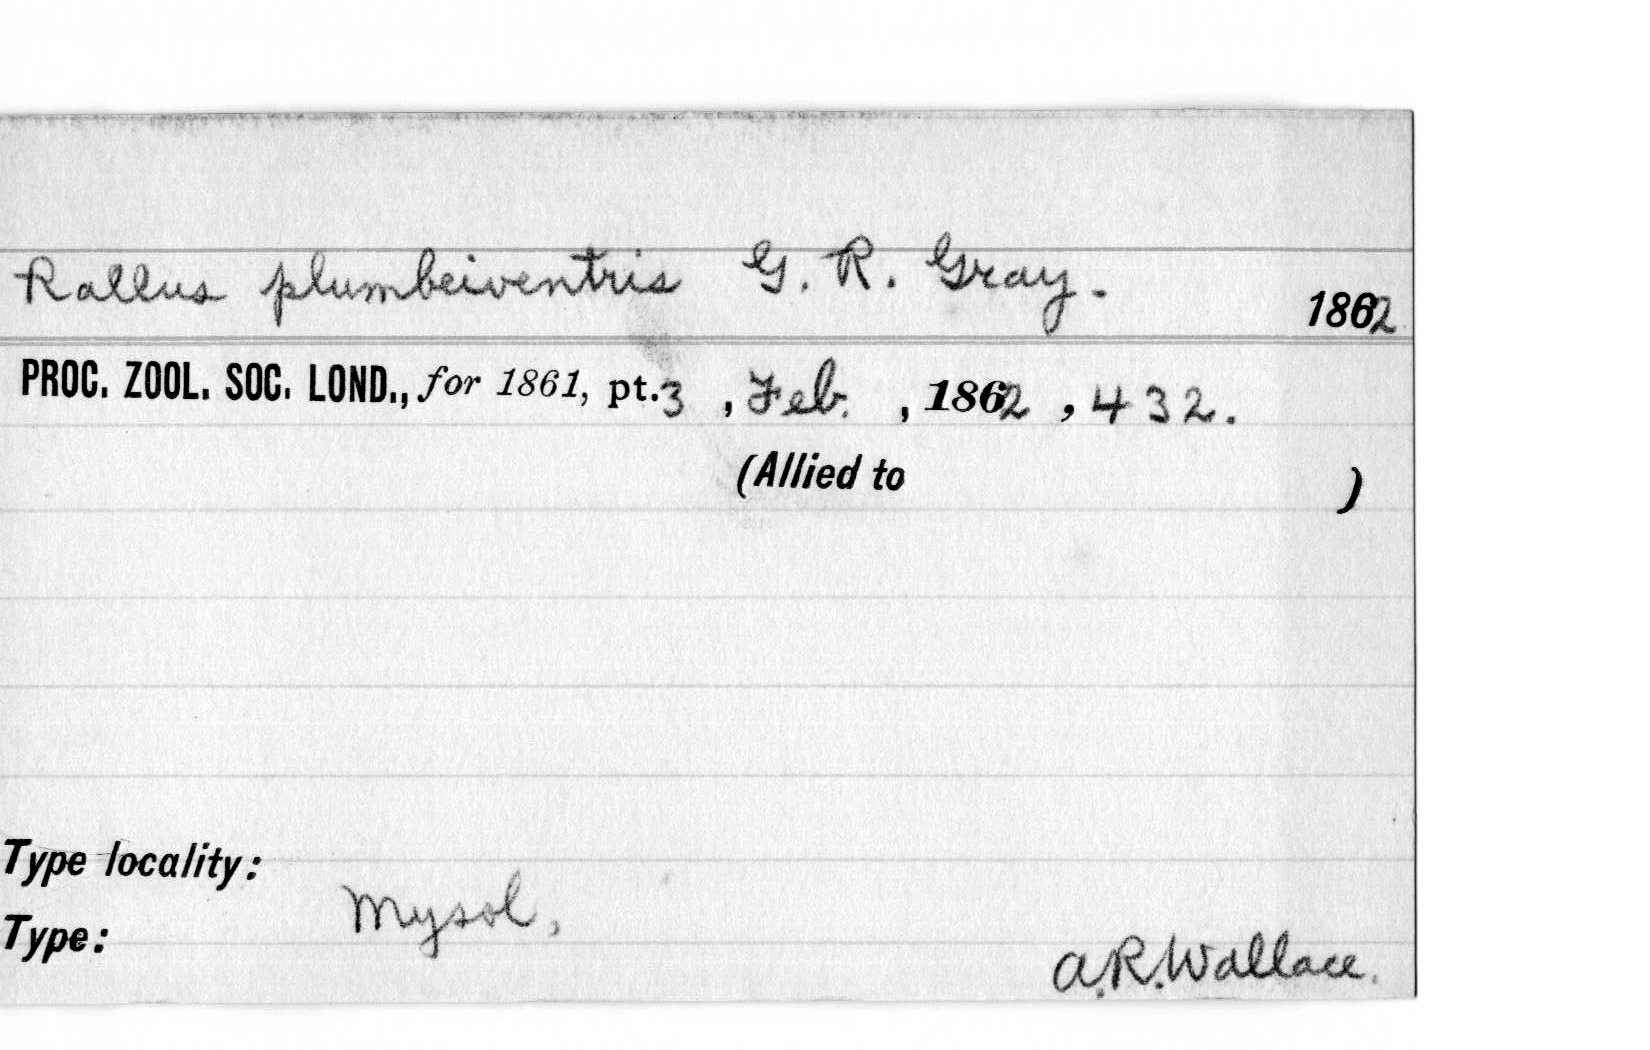 Rallus plumbeiventris G. R. Gray. 1862
PROC. ZOOL. SOC. LOND., for 1861, pt. 3, Feb., 1862, 432.
(Allied to )
Type locality:
Mysol,
Type:
A.R.Wallace.